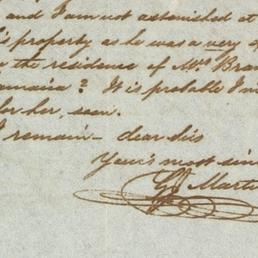 and I am not astonished at
's property as he was a very
the residence of Mrs Bran
amaica? It is probable I m
for her, soon.
I remain - dear sis
Your's most sin
Marti